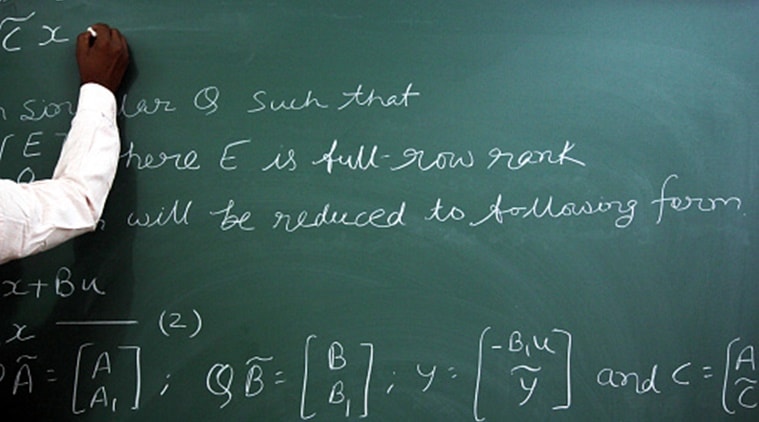 C̃ x
such that
[E where E is full-row rank
will be reduced to following form.
x+Bu
x ——— (2)
Ã = [A A₁] ; Q B̃ = [B B₁] ; y = [-B₁u ỹ] and C = [A C̃